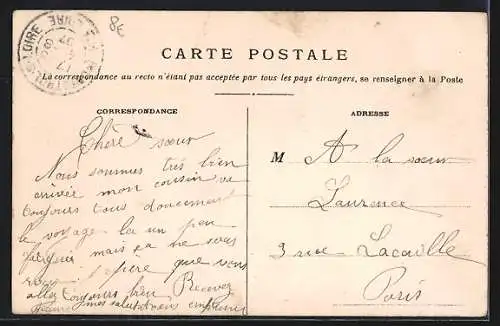 8€
LOIRE
CARTE POSTALE
La correspondance au recto n'étant pas acceptée par tous les pays étrangers, se renseigner à la Poste
CORRESPONDANCE
ADRESSE
Chère sœur
Nous sommes très bien
arrivée mon cousin va
toujours tous doucement
le voyage la un peu
fatiguer mais ça ne sera
rien j'espère que vous
allez toujours bien Recevez
mes salutations
M A la sœur
Laurence
3 rue Lacaille
Paris